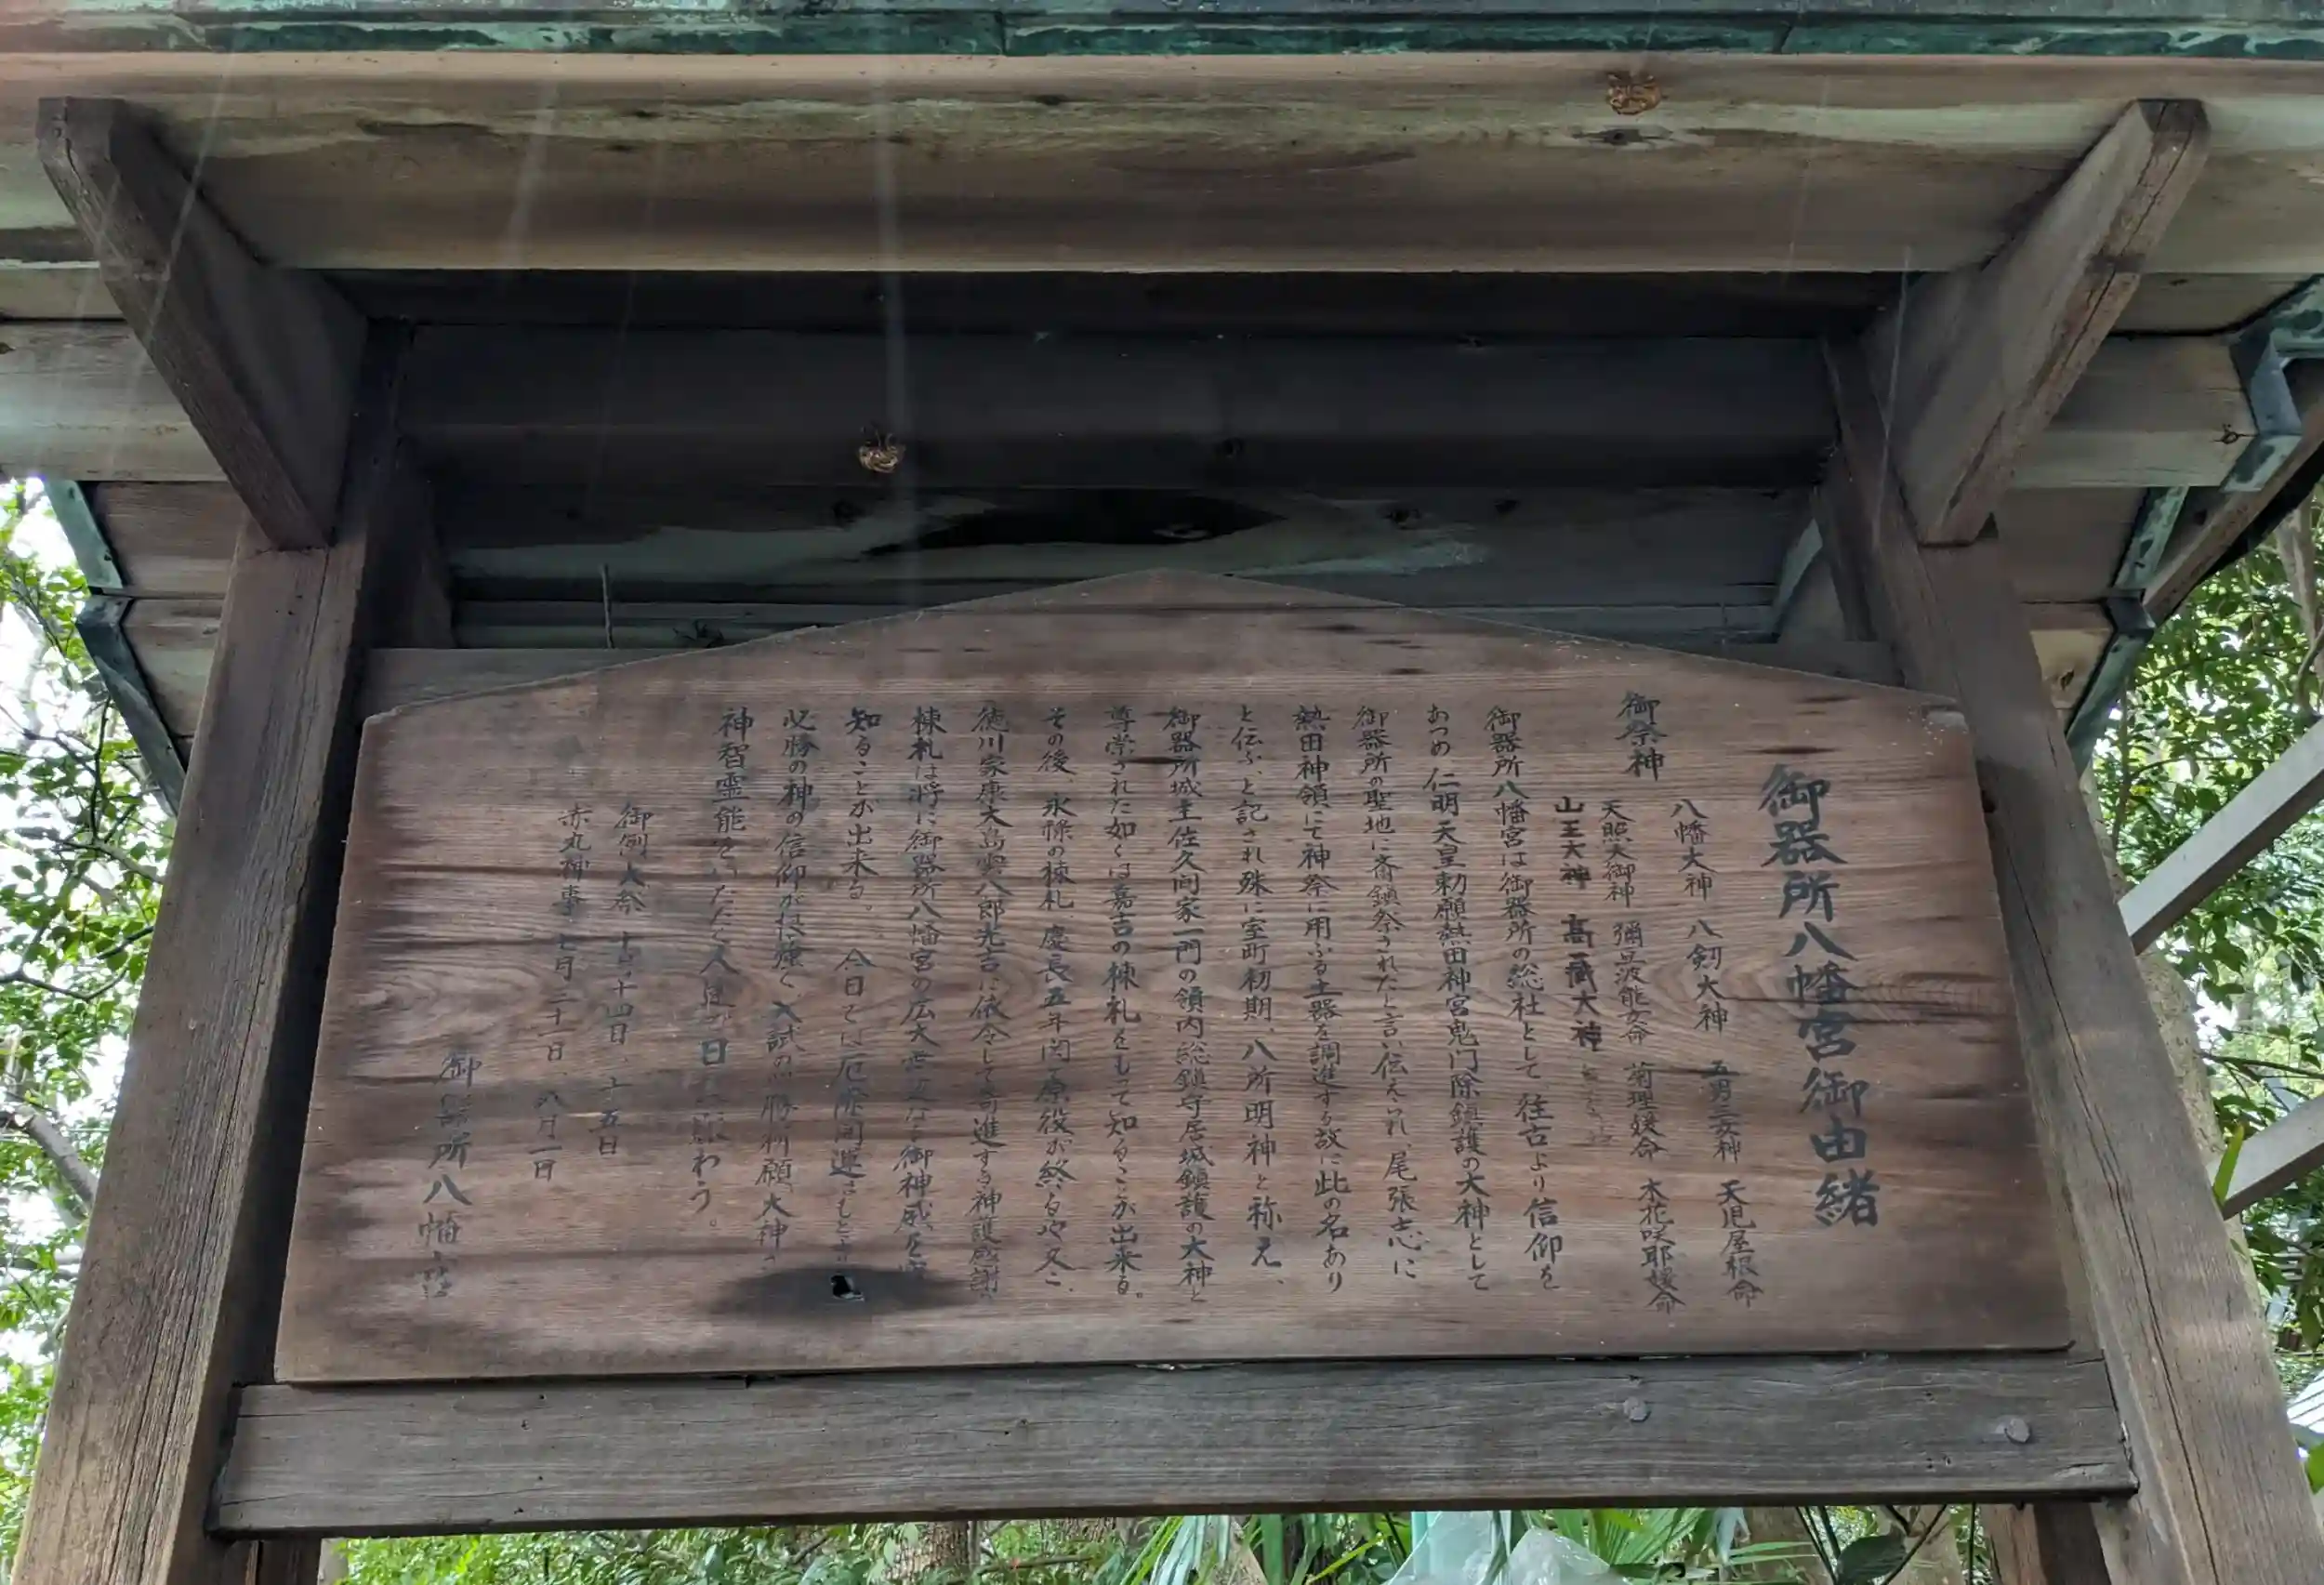 御器所八幡宮御由緒
御祭神
八幡大神 八剱大神 五男三女神 天児屋根命
天照大御神 彌豆波能女命 菊理媛命 木花咲耶媛命
山王大神 高蔵大神
御器所八幡宮は御器所の総社として、往古より信仰を
あつめ 仁明天皇勅願熱田神宮鬼門除鎮護の大神として
御器所の聖地に斎鎮祭されたと言い伝えられ、尾張志に
熱田神領にて神祭に用ふる土器を調進する故に此の名あり
と伝ふ、と記され殊に室町初期、八所明神と称え、
御器所城主佐久間家一門の領内総鎮守居城鎮護の大神と
尊崇された如くは嘉吉の棟札をもって知ることが出来る。
その後、永禄の棟札、慶長五年関ヶ原役が終るや又こ、
徳川家康大島與八郎光吉に依令して寄進する神護感謝の
棟札は将に御器所八幡宮の広大無辺なる御神威を
知ることが出来る。 今日では厄除開運はもと
必勝の神の信仰が根強く、入試の必勝祈願、大神
神智霊能をいただく人達が日々賑わう。
御例大祭 十月十四日、十五日
赤丸神事 七月三十一日、八月一日
御器所八幡宮